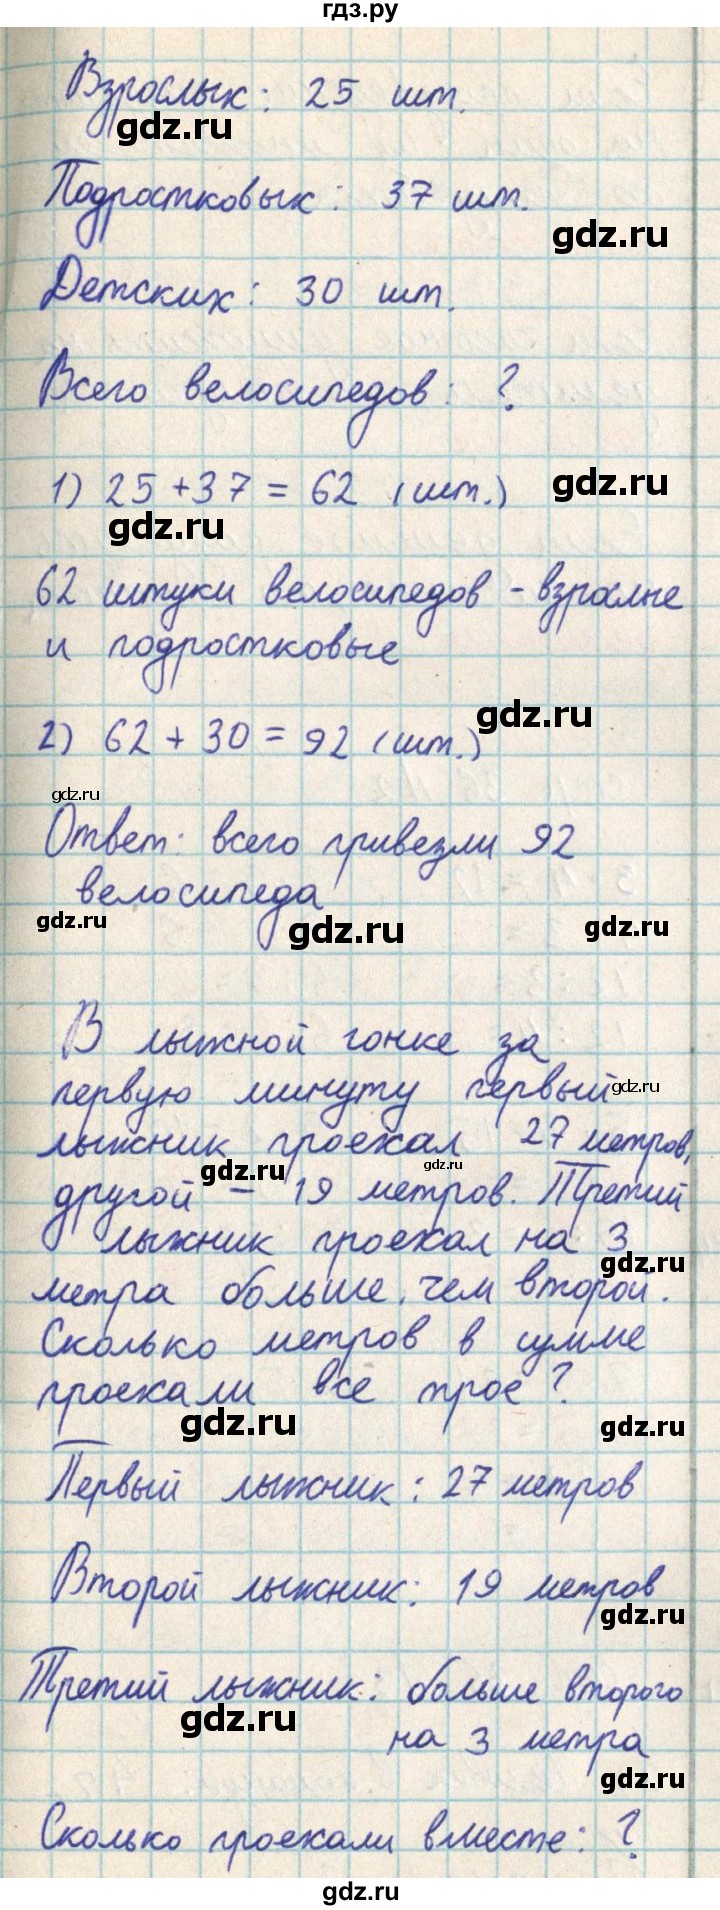 гдз.ру
Взрослых: 25 шт.
gdz.ru
Подростковых: 37 шт.
gdz.ru
Детских: 30 шт.
Всего велосипедов: ?
1) 25 + 37 = 62 (шт.)
gdz.ru
gdz.ru
62 штуки велосипедов - взрослые
и подростковые
gdz.ru
2) 62 + 30 = 92 (шт.)
gdz.ru
Ответ: всего привезли 92
велосипеда
gdz.ru
gdz.ru
gdz.ru
В лыжной гонке за
первую минуту первый
gdz.ru
лыжник проехал 27 метров,
gdz.ru
gdz.ru
другой - 19 метров. Третий
лыжник проехал на 3
gdz.ru
метра больше, чем второй.
Сколько метров в сумме
проехали все трое?
gdz.ru
gdz.ru
Первый лыжник: 27 метров
Второй лыжник: 19 метров
gdz.ru
Третий лыжник: больше второго
gdz.ru
на 3 метра
gdz.ru
Сколько проехали вместе: ?
gdz.ru